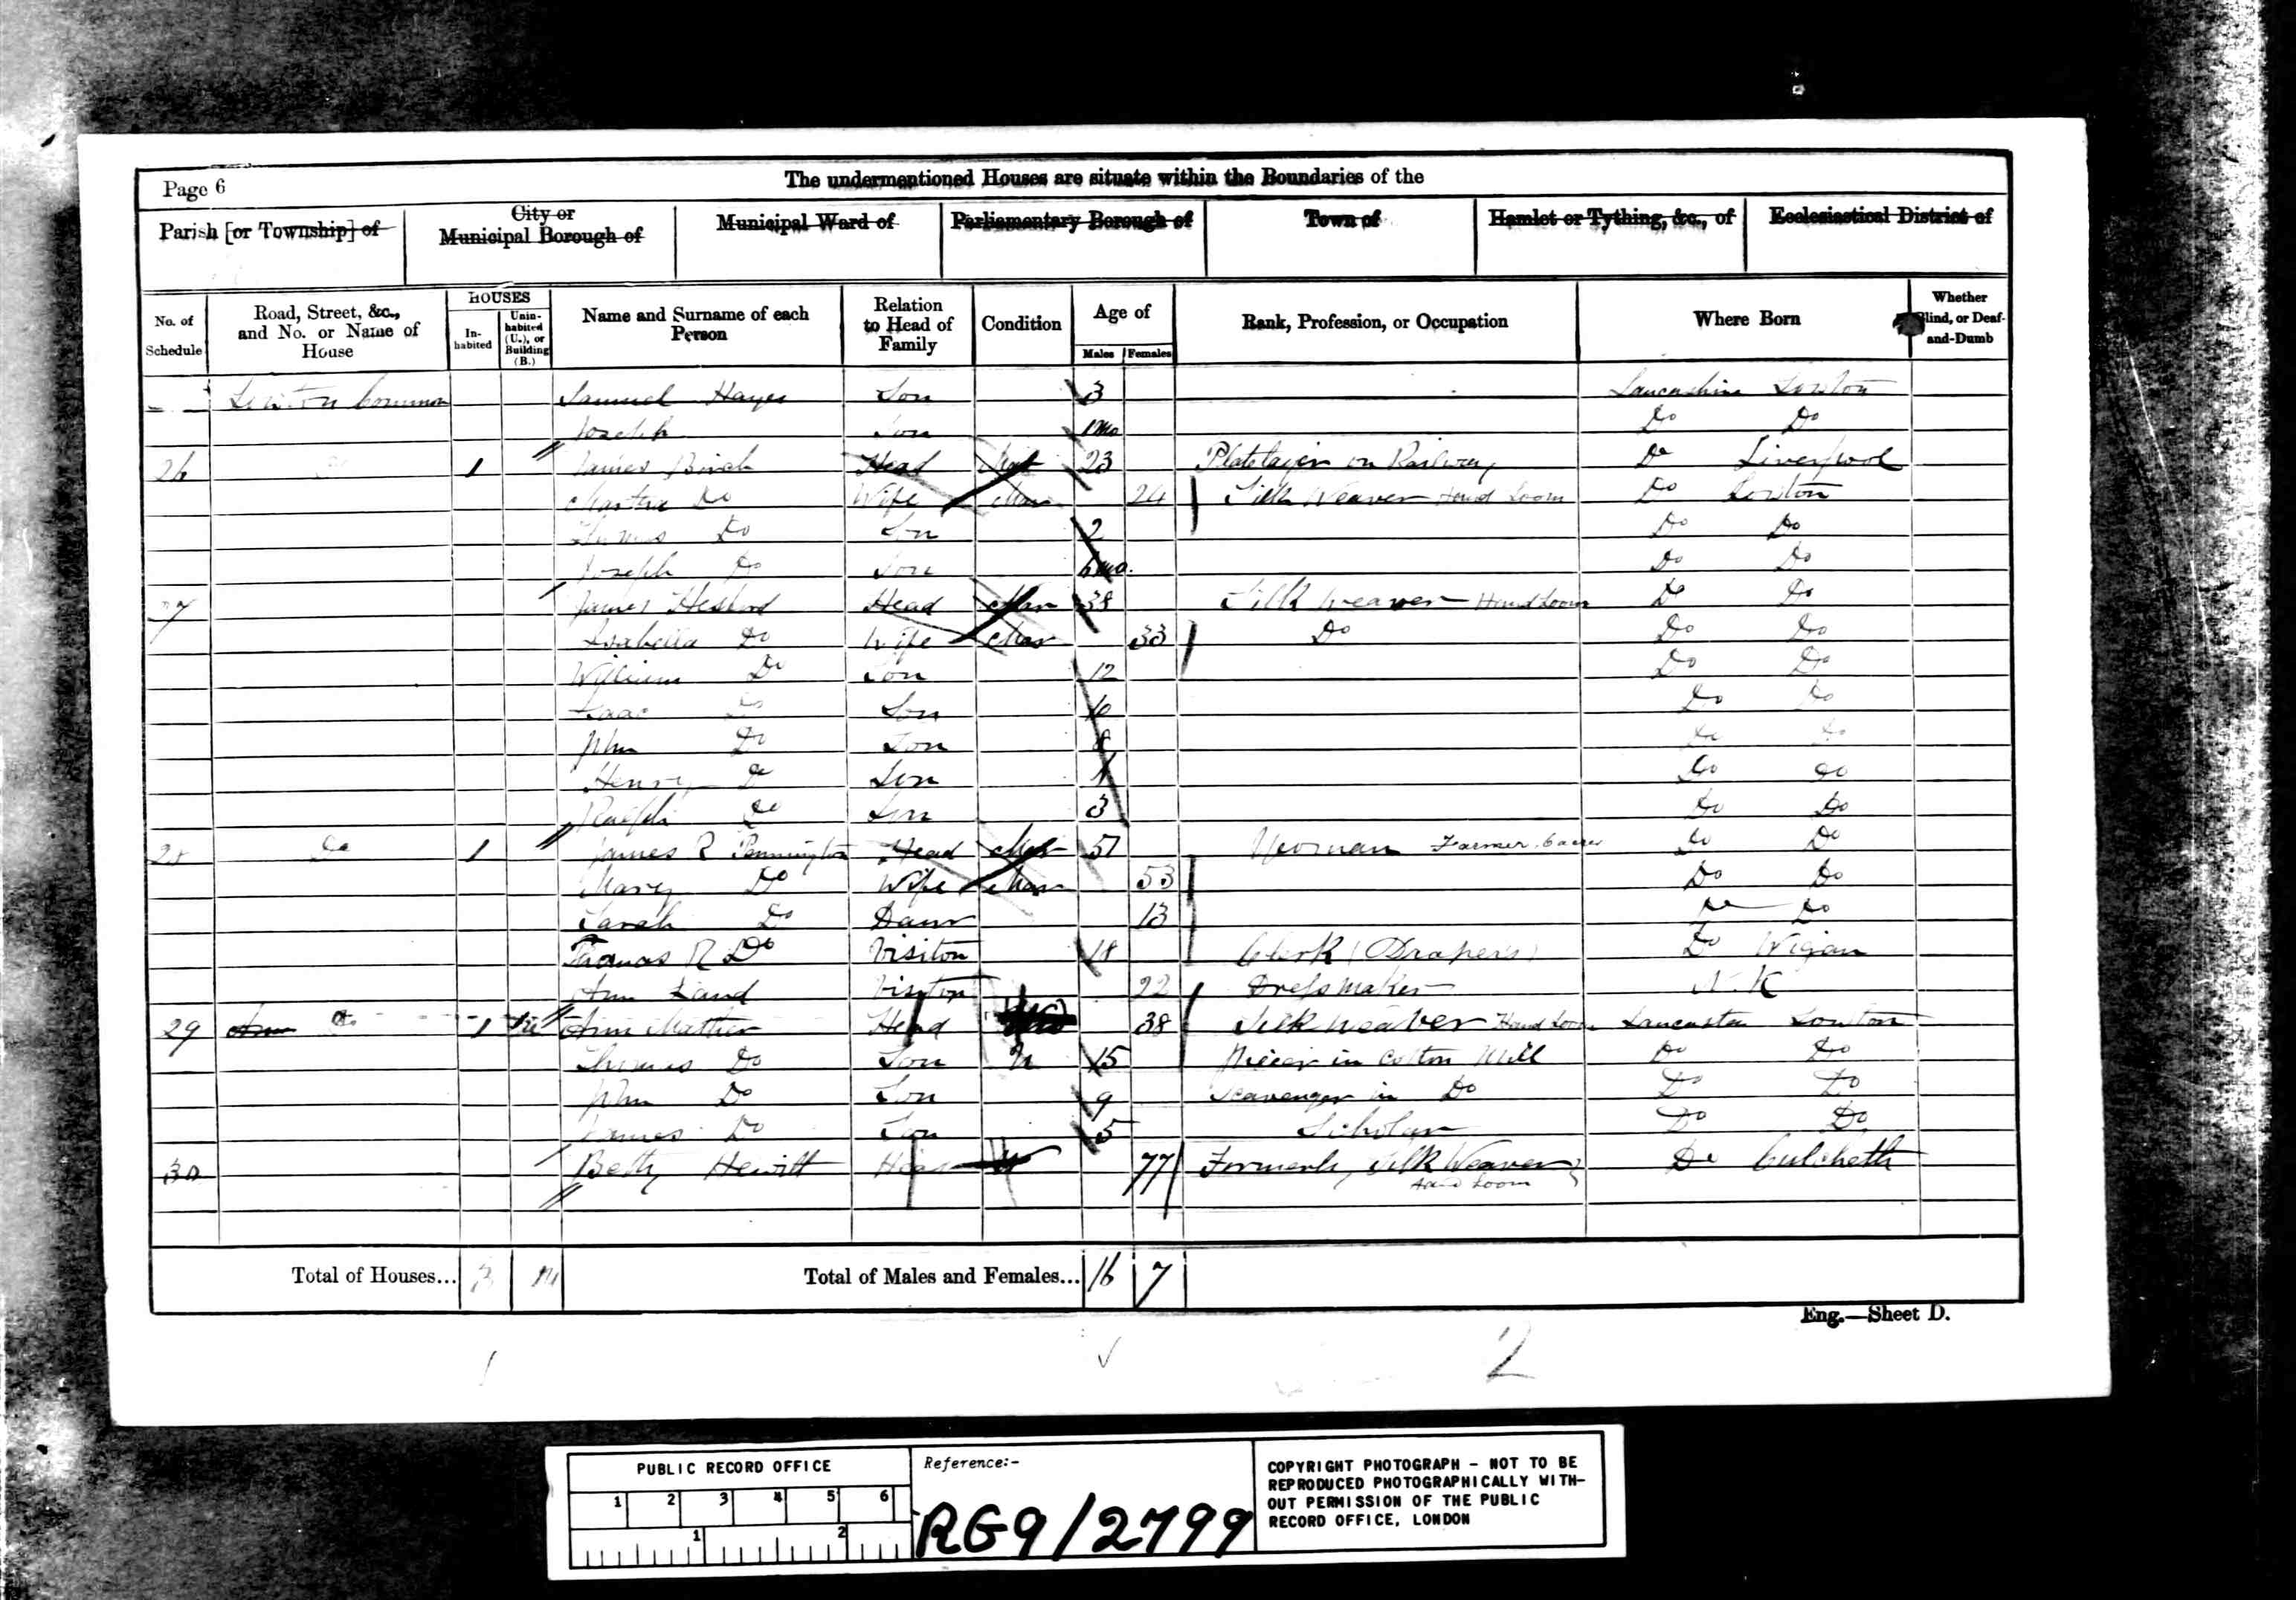 Page 6
The undermentioned Houses are situate within the Boundaries of the
Parish [or Township] of
City or Municipal Borough of
Municipal Ward of
Parliamentary Borough of
Town of
Hamlet or Tything, &c., of
Ecclesiastical District of
No. of Schedule
Road, Street, &c., and No. or Name of House
HOUSES
In-habited
Unin-habited (U.), or Building (B.)
Name and Surname of each Person
Relation to Head of Family
Condition
Age of
Males Females
Rank, Profession, or Occupation
Where Born
Whether Blind, or Deaf-and-Dumb
Lowton Common Samuel Hayes Son 3 Lancashire Lowton
Joseph Son 1mo Do Do
26 1 James Birch Head Mar 23 Platelayer on Railway Do Liverpool
Martha Do Wife Mar 24 Silk Weaver Hand Loom Do Lowton
Thomas Do Son 2 Do Do
Joseph Do Son 6mo. Do Do
27 James Head Mar 38 Silk Weaver Hand Loom Do Do
Isabella Do Wife Mar 33 Do Do Do
William Do Son 12 Do Do
Isaac Do Son 10 Do Do
John Do Son 8 Do Do
Henry Do Son Do Do
Ralph Do Son 3 Do Do
28 Do 1 James R Pennington Head Mar 51 Farmer 6 acres Do Do
Mary Do Wife Mar 53 Do Do
Sarah Do Daur 13 Do Do
Thomas R Do Visitor 18 Clerk (Drapers) Do Wigan
Ann Visitor 22 Dressmaker N.K
29 Do 1 Ann Mather Head 38 Silk Weaver Hand Loom Lancaster Lowton
Thomas Do Son U 15 Piecer in Cotton Mill Do Do
John Do Son 9 Scavenger in Do Do Do
James Do Son 5 Scholar Do Do
30 Betty Hewitt Head 77 Formerly Silk Weaver Do Culcheth
Hand Loom
Total of Houses... 3
Total of Males and Females... 16 7
Eng.—Sheet D.
2
PUBLIC RECORD OFFICE
1 2 3 4 5 6
1 2
Reference:-
RG9/2799
COPYRIGHT PHOTOGRAPH - NOT TO BE
REPRODUCED PHOTOGRAPHICALLY WITH-
OUT PERMISSION OF THE PUBLIC
RECORD OFFICE, LONDON